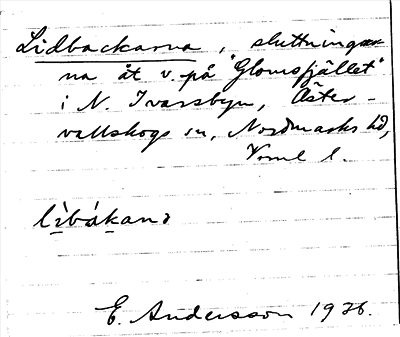 Lidbackarna, sluttningar-
na åt v. på "Glomsfjället"
i N. Ivarsbyn, Öster-
vallskogs sn, Nordmarks hd,
Vrml l.
lìbákanə
E. Andersson 1926.